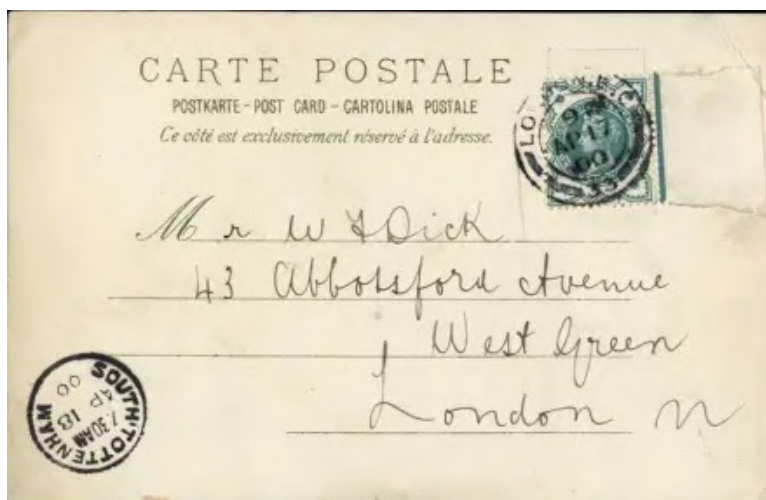 CARTE POSTALE
POSTKARTE - POST CARD - CARTOLINA POSTALE
Ce côté est exclusivement réservé à l'adresse.
LONDON. E.C
AP 17
00
33
Mr W Dick
43 Abbotsford Avenue
West Green
London N
SOUTH TOTTENHAM
7.30AM
AP 18
00